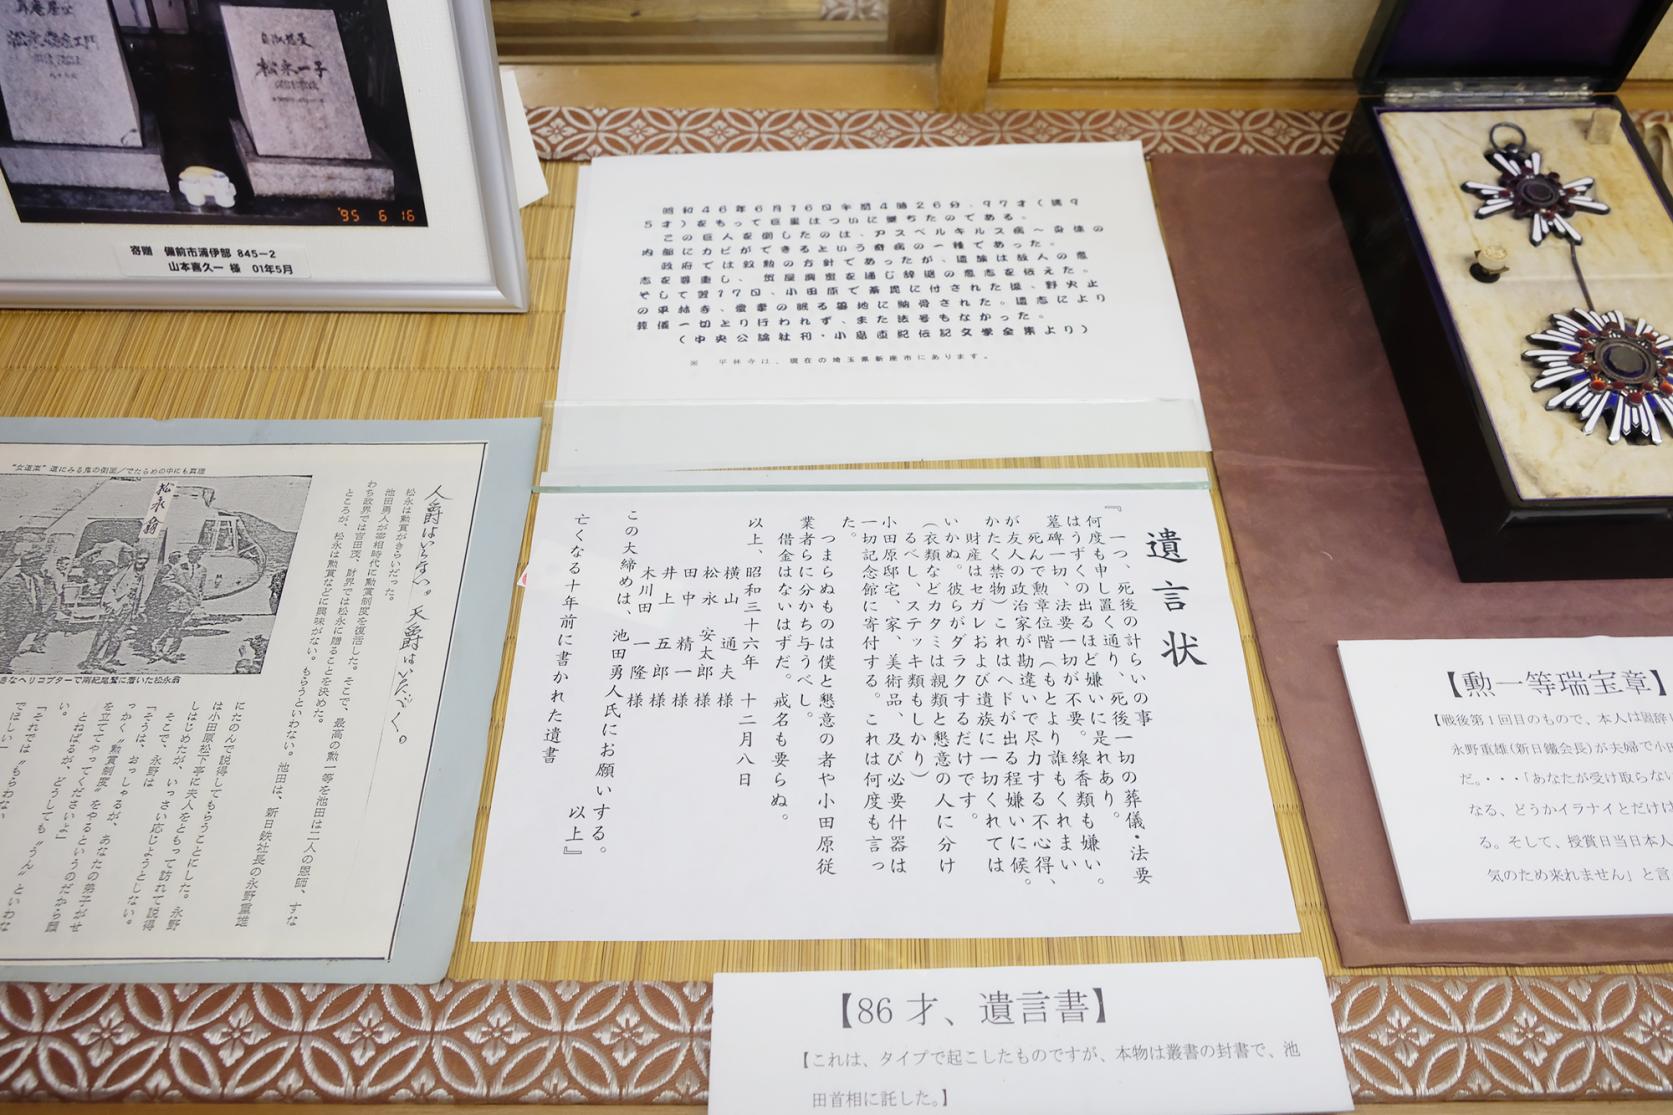 松永一子
'95 6 16
寄贈 備前市浦伊部 845-2
山本喜久一 様 01年5月
昭和46年6月16日午前4時26分、97才(満9
5才)をもって巨星はついに墜ちたのである。
この巨人を倒したのは、アスペルギルス病〜身体の
内部にカビができるという奇病の一種であった。
政府では叙勲の方針であったが、遺族は故人の意
志を尊重し、
そして翌17日、小田原で荼毘に付された後、野火止
の平林寺、愛妻の眠る墓地に納骨された。遺志により
葬儀一切とり行われず、また法号もなかった。
(中央公論社刊・小島直記伝記文学全集より)
※ 平林寺は、現在の埼玉県新座市にあります。
遺言状
『一つ、死後の計らいの事
何度も申し置く通り、死後一切の葬儀・法要
はうずくの出るほど嫌いに是れあり。
墓碑一切、法要一切が不要。線香類も嫌い。
死んで勲章位階(もとより誰もくれまい
が友人の政治家が勘違いで尽力する不心得、
かたく禁物)これはヘドが出る程嫌いに候。
財産はセガレおよび遺族に一切くれては
いかぬ。彼らがダラクするだけです。
(衣類などカタミは親類と懇意の人に分け
るべし、ステッキ類もしかり)
小田原邸宅、家、美術品、及び必要什器は
一切記念館に寄付する。これは何度も言っ
た。
つまらぬものは僕と懇意の者や小田原従
業者らに分かち与うべし。
借金はないはずだ。戒名も要らぬ。
以上、昭和三十六年 十二月八日
横山 通夫 様
松永 安太郎 様
田中 精一 様
井上 五郎 様
木川田 一隆 様
この大締めは、池田勇人氏にお願いする。
以上』
亡くなる十年前に書かれた遺書
【86才、遺言書】
【これは、タイプで起こしたものですが、本物は叢書の封書で、池
田首相に託した。】
"女道楽"道にみる鬼の側面/でたらめの中にも真理
松永翁
きなヘリコプターで南紀尾鷲に着いた松永翁
人爵はいらない。天爵はいただく。
松永は勲賞がきらいだった。
池田勇人が宰相時代に勲賞制度を復活した。そこで、最高の勲一等を池田は二人の恩師、すな
わち政界では吉田茂、財界では松永に贈ることを決めた。
ところが、松永は勲賞などに興味がない。もらうといわない。池田は、新日鉄社長の永野重雄
にたのんで説得してもらうことにした。永野
は小田原松下亭に夫人をともって訪れて説得
しはじめたが、いっさい応じようとしない。
そこで、永野は
「そうは、おっしゃるが、あなたの弟子がせ
っかく、勲賞制度をやるというのだから顔
を立ててやってくださいよ」
とねばるが、どうしても"うん"といわな
い。
「それでは"もらわない
でほしい」
【勲一等瑞宝章】
【戦後第1回目のもので、本人は固辞し
永野重雄(新日鐵会長)が夫婦で小田
だ。・・・「あなたが受け取らない
なる、どうかイラナイとだけは
る。そして、授賞日当日本人
気のため来れません」と言